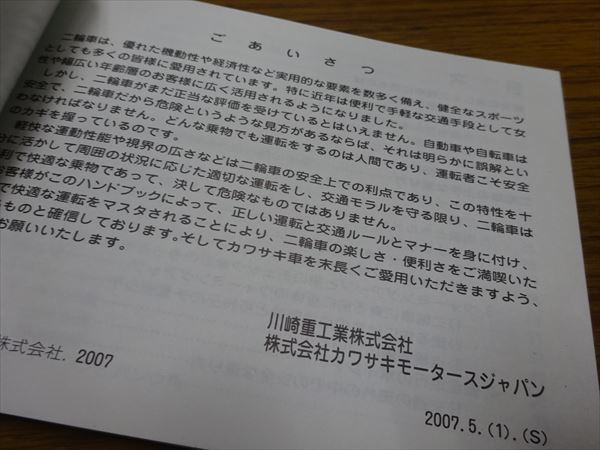 ごあいさつ
二輪車は、優れた機動性や経済性など実用的な要素を数多く備え、健全なスポーツ
としても多くの皆様に愛用されています。特に近年は便利で手軽な交通手段として女
性や幅広い年齢層のお客様に広く活用されるようになりました。
しかし、二輪車がまだ正当な評価を受けているとはいえません。自動車や自転車は
安全で、二輪車だから危険というような見方があるならば、それは明らかに誤解とい
わなければなりません。どんな乗物でも運転をするのは人間であり、運転者こそ安全
のカギを握っているのです。
軽快な運動性能や視界の広さなどは二輪車の安全上での利点であり、この特性を十
分に活かして周囲の状況に応じた適切な運転をし、交通モラルを守る限り、二輪車は
利で快適な乗物であって、決して危険なものではありません。
お客様がこのハンドブックによって、正しい運転と交通ルールとマナーを身に付け、
で快適な運転をマスタされることにより、二輪車の楽しさ・便利さをご満喫いた
るものと確信しております。そしてカワサキ車を末長くご愛用いただきますよう、
お願いいたします。
川崎重工業株式会社
株式会社カワサキモータースジャパン
株式会社. 2007
2007.5.(1).(S)